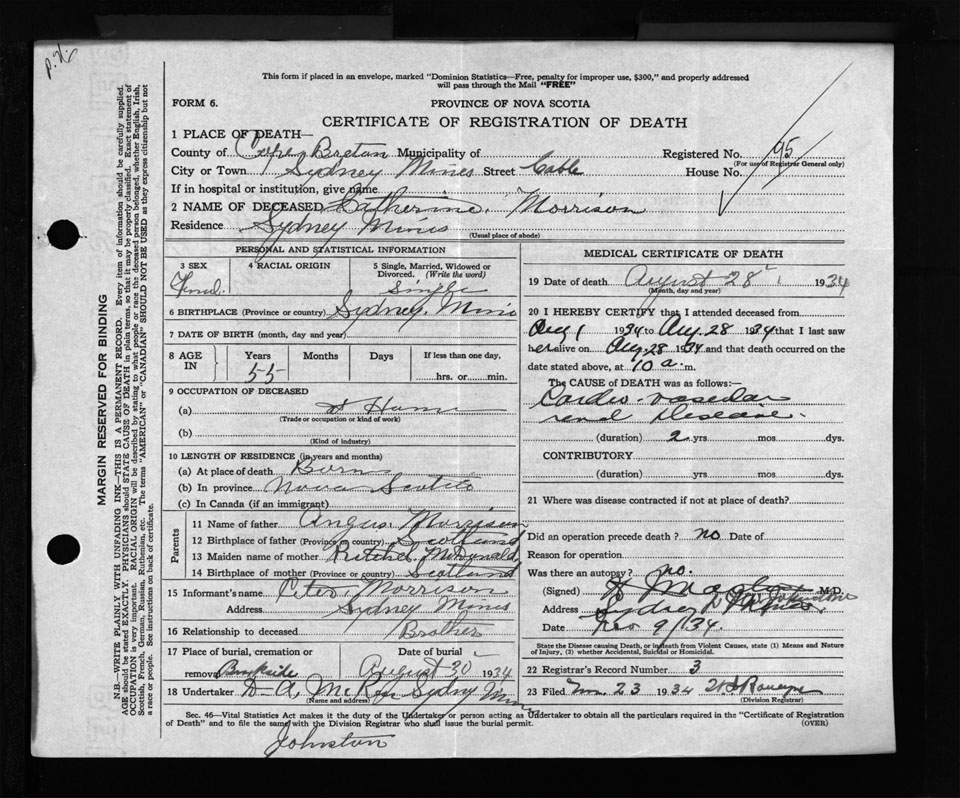 p.x.
This form if placed in an envelope, marked "Dominion Statistics—Free, penalty for improper use, $300," and properly addressed
will pass through the Mail "FREE"
FORM 6.
PROVINCE OF NOVA SCOTIA
CERTIFICATE OF REGISTRATION OF DEATH
1 PLACE OF DEATH—
County of Cape Breton Municipality of Registered No. 95
(For use of Registrar General only)
City or Town Sydney Mines Street Cable House No.
If in hospital or institution, give name
2 NAME OF DECEASED Catherine Morrison
Residence Sydney Mines
(Usual place of abode)
PERSONAL AND STATISTICAL INFORMATION
3 SEX 4 RACIAL ORIGIN 5 Single, Married, Widowed or
Divorced. (Write the word)
Single
6 BIRTHPLACE (Province or country) Sydney Mines
7 DATE OF BIRTH (month, day and year)
8 AGE IN Years Months Days If less than one day,
55 hrs. or min.
9 OCCUPATION OF DECEASED
(a) at Home
(Trade or occupation or kind of work)
(b)
(Kind of industry)
10 LENGTH OF RESIDENCE (in years and months)
(a) At place of death Born
(b) In province Nova Scotia
(c) In Canada (if an immigrant)
Parents
11 Name of father Angus Morrison
12 Birthplace of father (Province or country) Scotland
13 Maiden name of mother McDonald
14 Birthplace of mother (Province or country) Scotland
15 Informant's name Peter Morrison
Address Sydney Mines
16 Relationship to deceased Brother
17 Place of burial, cremation or Date of burial
removal Brookside August 30 1934
18 Undertaker D. A. Sydney Mines
(Name and address)
MEDICAL CERTIFICATE OF DEATH
19 Date of death August 28 1934
(Month, day and year)
20 I HEREBY CERTIFY that I attended deceased from
Aug 1 1934 to Aug. 28 1934 that I last saw
her alive on Aug. 28 1934 and that death occurred on the
date stated above, at 10 a. m.
The CAUSE of DEATH was as follows:—
Cardio-vascular
renal disease.
(duration) 2 yrs mos dys.
CONTRIBUTORY
(duration) yrs mos dys.
21 Where was disease contracted if not at place of death?
Did an operation precede death? no Date of
Reason for operation
Was there an autopsy? no.
(Signed) M.D.
Address Sydney Mines
Date Nov 9/34.
State the Disease causing Death, or in Death from Violent Causes, state (1) Means and Nature
of Injury, (2) whether Accidental, Suicidal or Homicidal.
22 Registrar's Record Number 3
23 Filed Nov. 23 1934
(Division Registrar)
Sec. 46—Vital Statistics Act makes it the duty of the Undertaker or person acting as Undertaker to obtain all the particulars required in the "Certificate of Registration
of Death" and to file the same with the Division Registrar who shall issue the burial permit.
(OVER)
Johnston
MARGIN RESERVED FOR BINDING
N.B.—WRITE PLAINLY WITH UNFADING INK—THIS IS A PERMANENT RECORD. Every item of information should be carefully supplied.
AGE should be stated EXACTLY. PHYSICIANS should STATE CAUSE OF DEATH in plain terms, so that it may be properly classified. Exact statement of
OCCUPATION is very important. RACIAL ORIGIN will be described by stating to what people or race the deceased person belonged, whether English, Irish,
Scottish, French, German, Russian, Ruthenian, etc. The terms "AMERICAN" or "CANADIAN" SHOULD NOT BE USED as they express citizenship but not
a race or people. See instructions on back of certificate.